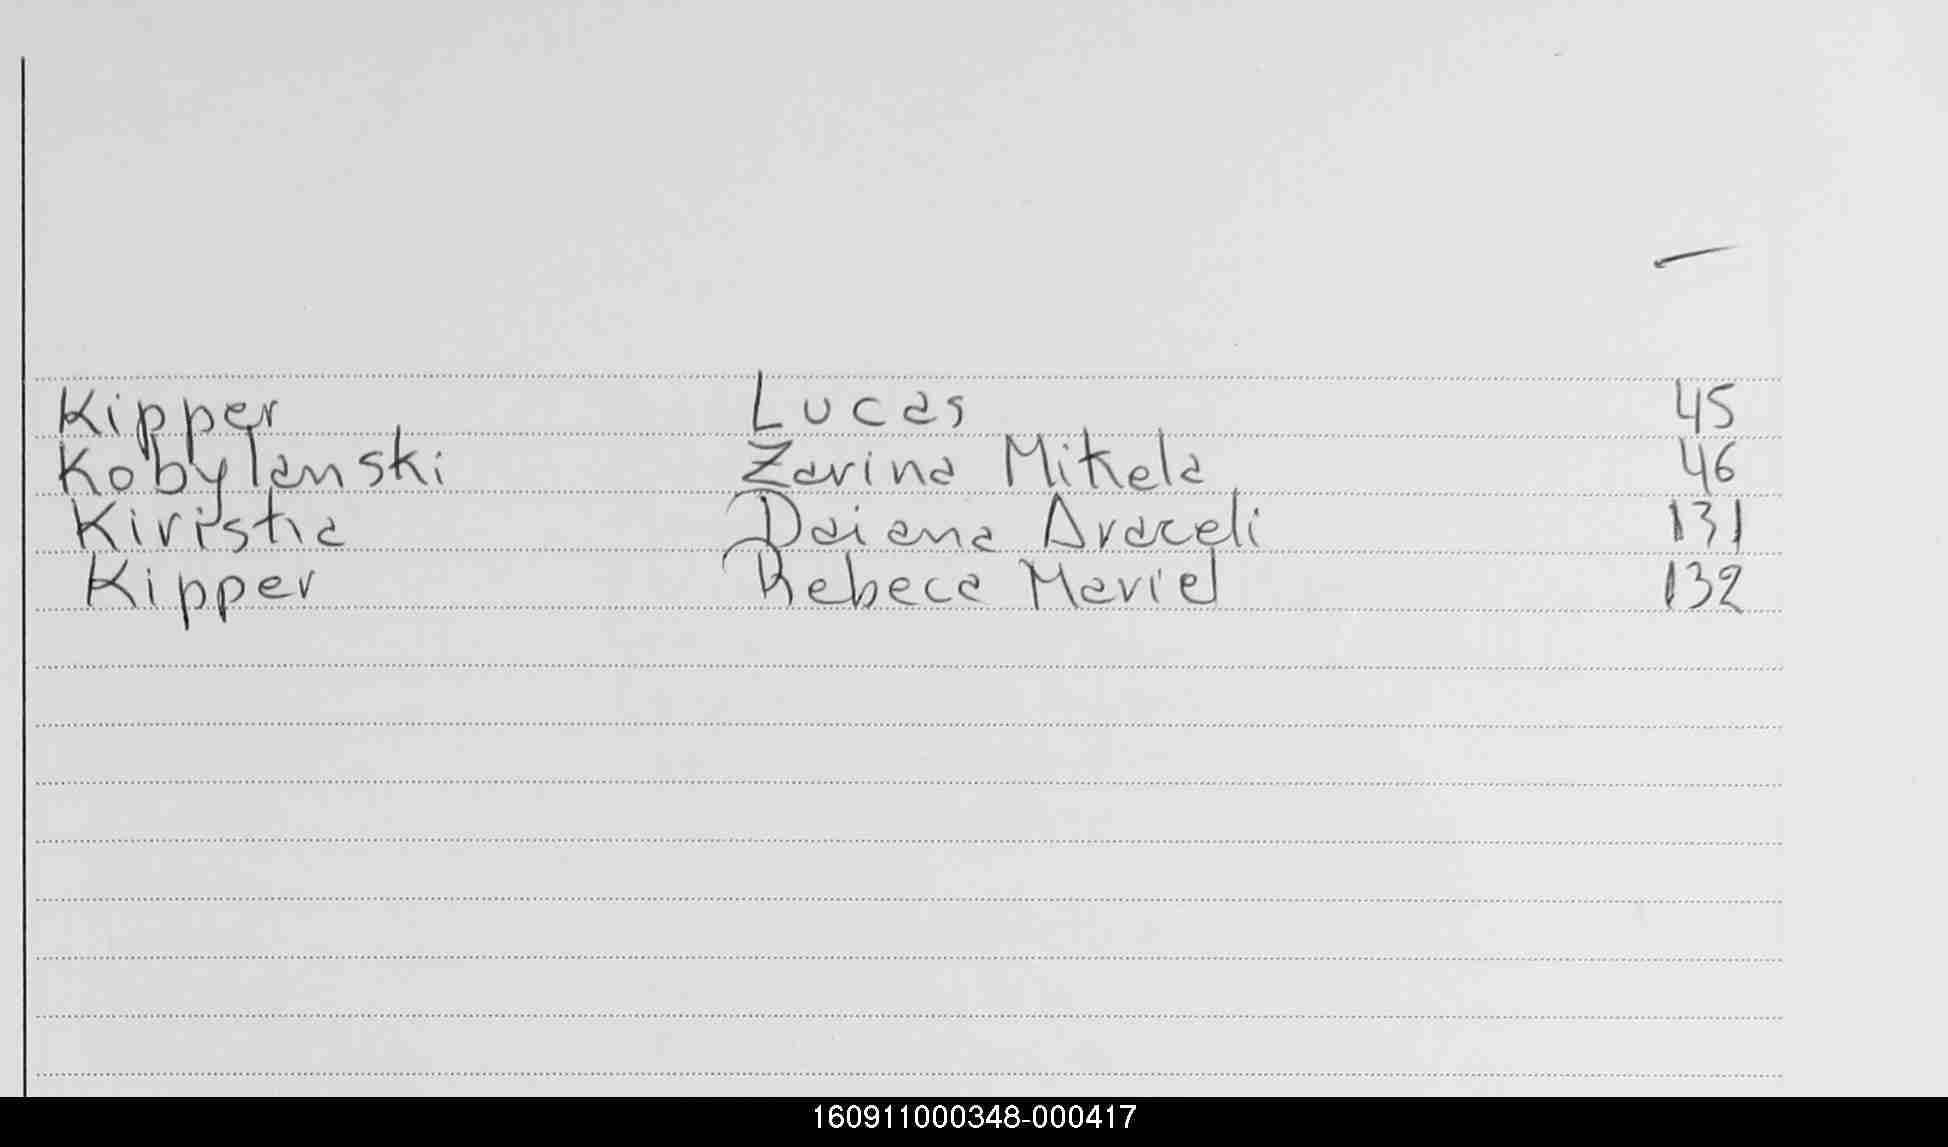 Kipper Lucas 45
Kobylanski Zarina Mikela 46
Daiana Araceli 131
Kipper Rebeca Mariel 132
160911000348-000417